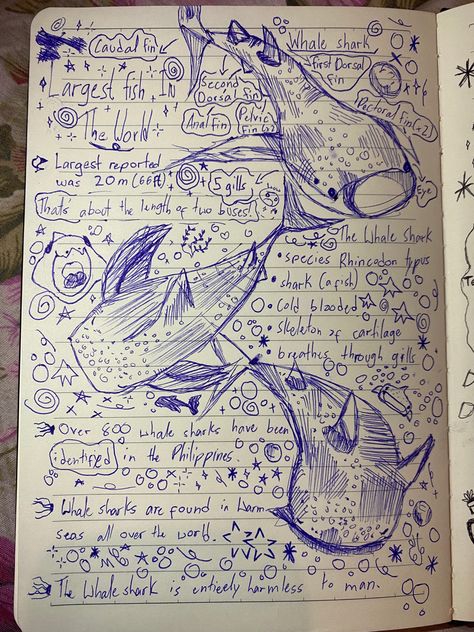 Caudal fin
Whale shark
Second
Dorsal fin
First Dorsal
fin
Largest fish In
The World
Anal Fin
Pelvic
Fin (2)
Pectoral Fin (x2)
Largest reported
was 20 m (66ft)
5 gills
Eye
That's about the length of two buses!
The Whale shark
• species Rhincodon typus
• shark (a fish)
• Cold blooded
• Skeleton of cartilage
• breathes through gills
Over 800 whale sharks have been
identified in the Philippines.
Whale sharks are found in warm
seas all over the world.
The Whale shark is entirely harmless to man.